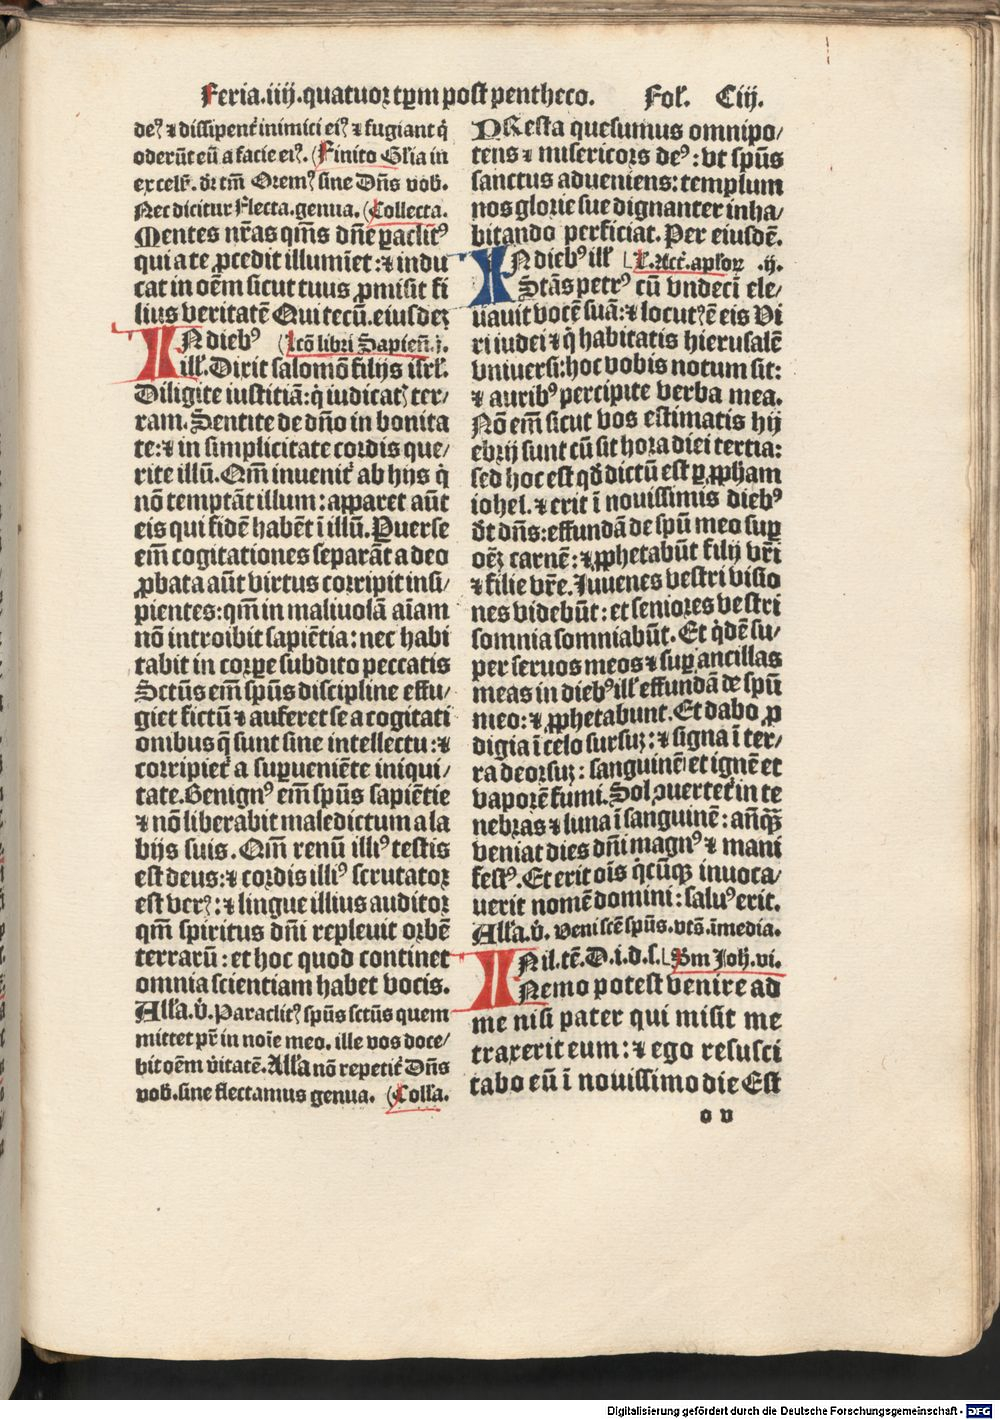 Feria.iiij.quatuor tꝑm post pentheco. Fol. Ciij.
deꝰ ⁊ dissipent᷑ inimici eiꝰ ⁊ fugiant q̇
oderūt eū a facie eiꝰ. (Finito Glīa in
excelſ. dr̄ tm̄ Oremꝰ sine Dn̄s vob.
Nec dicitur Flecta.genua. (Collecta.
Mentes nr̄as qm̄s dn̄e paclitꝰ
qui a te ꝓcedit illumiēt:⁊ indu
cat in oēm sicut tuus ꝓmisit fi
lius veritatē Qui tecū.eiusdeꝫ
IN diebꝰ (Lcō libri Sapien̄.j.
ill'. Dixit salomō filijs isrl'.
Diligite iustitiā:q̇ iudicatꝭ ter/
ram. Sentite de dn̄o in bonita
te:⁊ in simplicitate cordis que/
rite illū. Qm̄ inuenit᷑ ab hijs q̇
nō temptāt illum:apparet aūt
eis qui fidē habēt ī illū. Puerse
em̄ cogitationes separāt a deo
ꝓbata aūt virtus corripit insi/
pientes:qm̄ in maliuolā aīam
nō introibit sapiētia:nec habi
tabit in corꝑe subdito peccatis
Sctūs em̄ spūs discipline effu/
giet fictū ⁊ auferet se a cogitati
onibus q̄ sunt sine intellectu:⁊
corripiet᷑ a suꝑueniēte iniqui/
tate. Benignꝰ em̄ spūs sapiētie
⁊ nō liberabit maledictum a la
bijs suis. Qm̄ renū illiꝰ testis
est deus:⁊ cordis illiꝰ scrutator
est verꝰ:⁊ lingue illius auditor
qm̄ spiritus dn̄i repleuit orbē
terrarū: et hoc quod continet
omnia scientiam habet vocis.
All'a. v̇. Paraclitꝰ spūs sctūs quem
mittet pr̄ in noīe meo. ille vos doce/
bit oēm v̇itatē. All'a nō repetit᷑ Dn̄s
vob. sine flectamus genua. (Coll'a.
PResta quesumus omnipo/
tens ⁊ misericors deꝰ: vt spūs
sanctus adueniens: templum
nos glorie sue dignanter inha/
bitando perficiat. Per eiusdē.
IN diebꝰ ill' L. Act̄.apl'oꝝ .ij.
Stās petrꝰ cū vndecī ele/
uauit vocē suā:⁊ locutꝰ ē eis Vi
ri iudei ⁊ q̇ habitatis hierusalē
vniuersi:hoc vobis notum sit:
⁊ auribꝰ percipite verba mea.
Nō em̄ sicut vos estimatis hij
ebrij sunt cū sit hora diei tertia:
sed hoc est qd̄ dictū est ꝑ ꝓpham
iohel. ⁊ erit ī nouissimis diebꝰ
dt̄ dn̄s:effundā de spū meo suꝑ
oēꝫ carnē:⁊ ꝓphetabūt filij vr̄i
⁊ filie vr̄e. Iuuenes vestri visio
nes videbūt: et seniores vestri
somnia somniabūt. Et q̇dē su/
per seruos meos ⁊ suꝑ ancillas
meas in diebꝰ ill' effundā de spū
meo:⁊ ꝓphetabunt. Et dabo ꝓ
digia ī celo sursuꝫ:⁊ signa ī ter/
ra deorsuꝫ: sanguinē et ignē et
vaporē fumi. Sol ꝯuertet᷑ in te
nebras ⁊ luna ī sanguinē: an̄qꝫ
veniat dies dn̄i magnꝰ ⁊ mani
festꝰ. Et erit oīs q̇cūqꝫ inuoca/
uerit nomē domini: saluꝰ erit.
All'a. v̇. Veni scē spūs. vts̄. īmedia.
IN il. tē. D. i. d. s. Sm̄ Joh. vi.
Nemo potest venire ad
me nisi pater qui misit me
traxerit eum: ⁊ ego resusci
tabo eū ī nouissimo die Est
o v
Digitalisierung gefördert durch die Deutsche Forschungsgemeinschaft - DFG